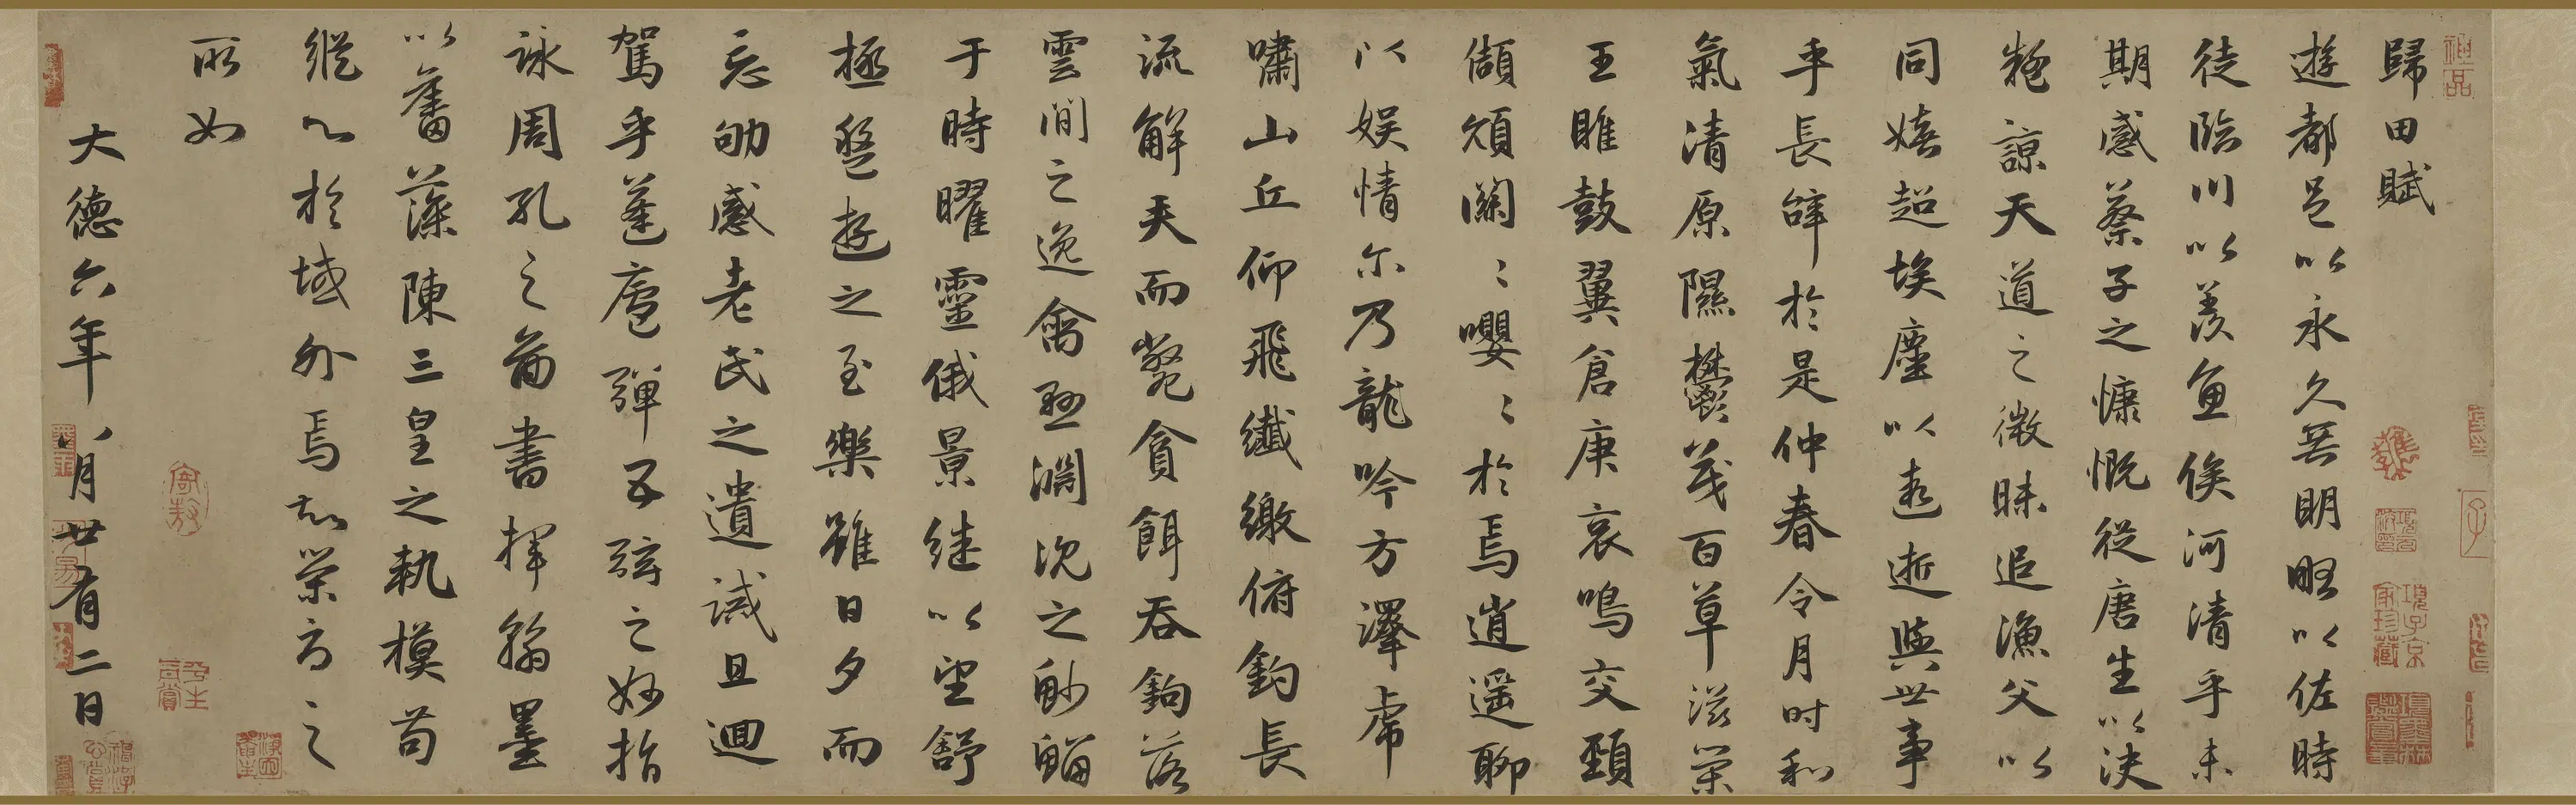 歸田賦
遊都邑以永久無明略以佐時
徒臨川以羨魚俟河清乎未
期感蔡子之慷慨從唐生以決
疑諒天道之微昧追漁父以
同嬉超埃塵以遐逝與世事
乎長辝於是仲春令月时和
氣清原隰鬱茂百草滋榮
王雎鼓翼倉庚哀鳴交頸
頡頏關〻嚶〻於焉逍遥聊
以娱情尒乃龍吟方澤虎
嘯山丘仰飛纖繳俯釣長
流觧矢而斃貪餌吞鉤落
雲間之逸禽懸淵沉之魦鰡
于時曜靈俄景继以望舒
極盤遊之至樂雖日夕而
忘劬感老氏之遺誡且迴
駕乎蓬廬彈五弦之妙指
詠周孔之啚書揮翰墨
以奮藻陳三皇之軌模苟
縱心於域外焉知榮辱之
所如
大德六年八月廿有二日
神品